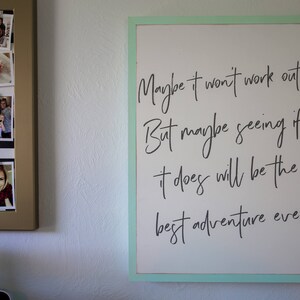 Maybe it won't work out
But maybe seeing if
it does will be the
best adventure eve